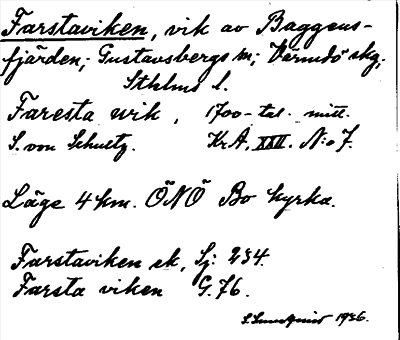 Farstaviken, vik av Baggens-
fjärden; Gustavsbergs m; Värmdö skg;
Sthlms l.
Faresta wik, 1700-tal. mitt.
S. von Schultz. KrA, XXII. N:o 7.
Läge 4 km. ÖNÖ Bo kyrka.
Farstaviken ek, Sj: 234.
Farsta viken G. 76.
1936.